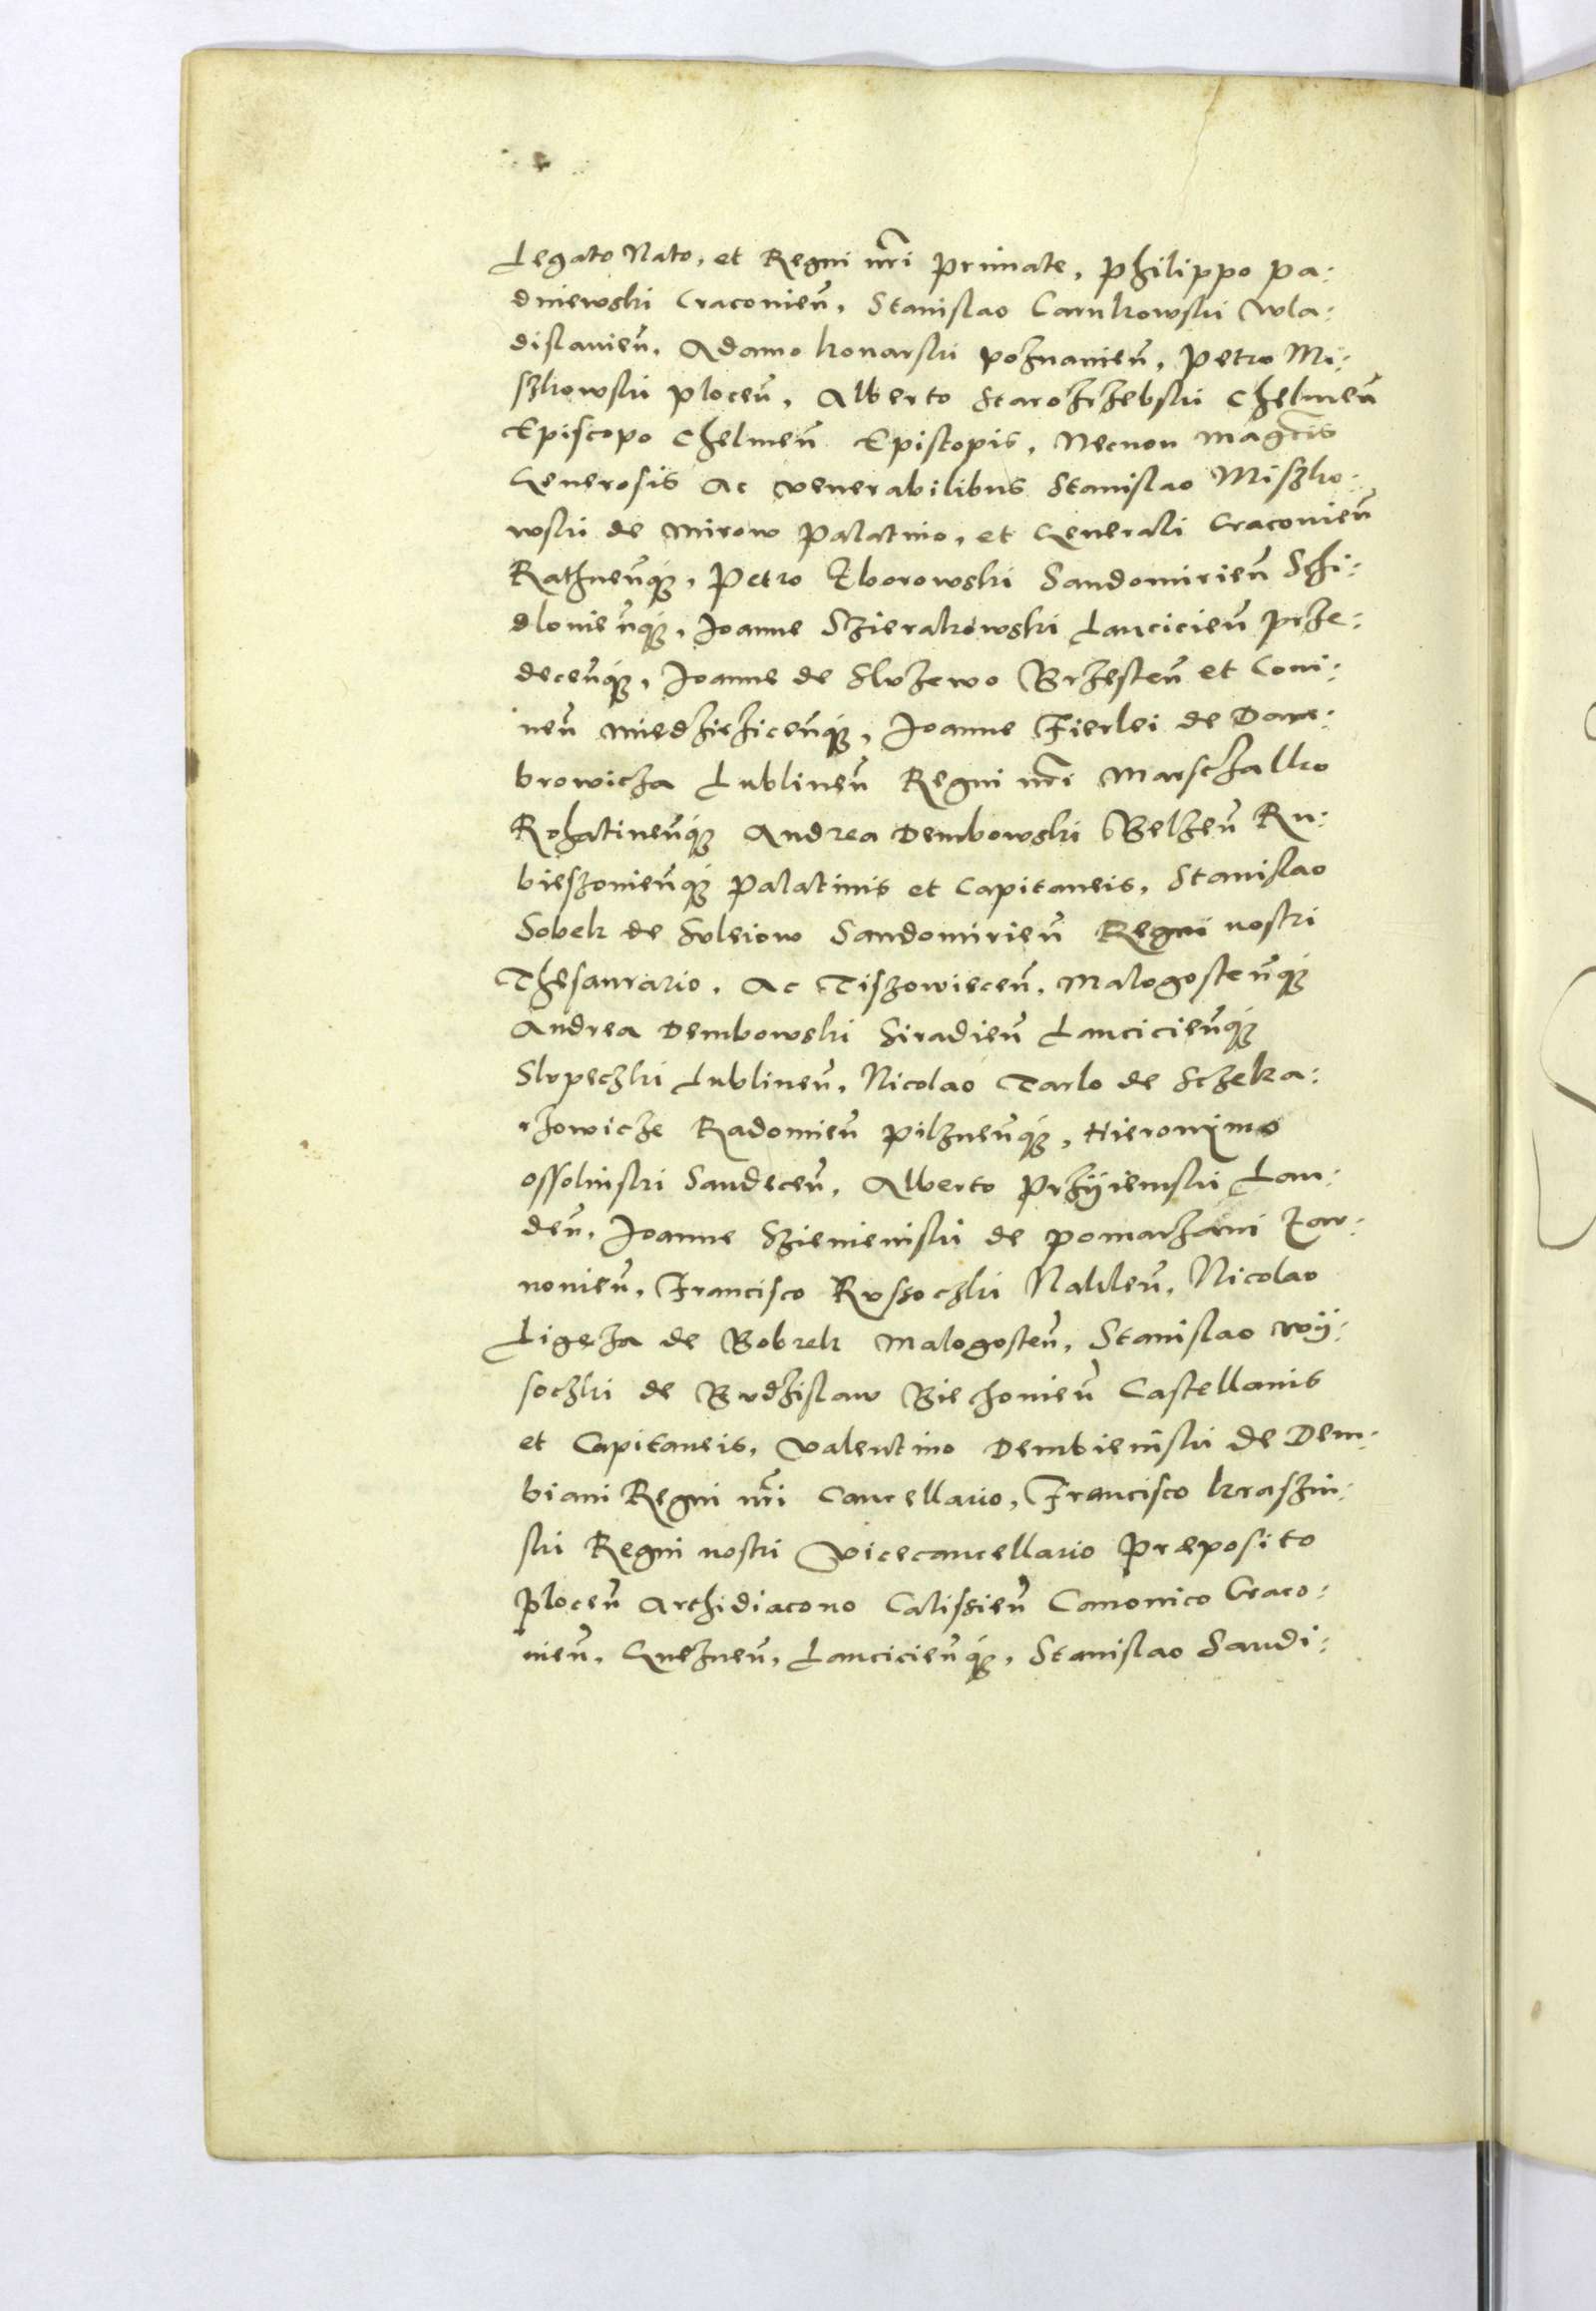 Legato Nato, et Regni nr̃i Primate, Philippo Pa:
dniewski Cracovieñ, Stanislao Carnkowski Wla:
dislavieñ, Adamo Konarski Poznanieñ, Petro Mi:
szkowski Ploceñ, Alberto Starozrzebski Chelmeñ
Episcopo Chelmeñ Episcopis, Necnon Magc̃is
Generosis ac Venerabilibus Stanislao Miszko:
wski de Mirow Palatino, et Generali Cracovieñ
Rathneñq́ȝ, Petro Zborowski Sandomirieñ Schi:
dlovieñq́ȝ, Joanne Szierakowski Lancicieñ Prze:
deceñq́ȝ, Joanne de Sluzewo Brzesteñ et Coni:
neñ Miedzirziceñq́ȝ, Joanne Fierlei de Dam:
browicza Lublineñ Regni nr̃i Marschalko
Rohatineñq́ȝ Andrea Dembowski Belzeñ Ru:
bieszovieñq́ȝ Palatinis et Capitaneis, Stanislao
Sobek de Suleiow Sandomirieñ Regni nostri
Thesaurario, ac Tiszowieceñ, Malogosteñq́ȝ
Andrea Dembowski Siradieñ Lancicieñq́ȝ
Slupeczki Lublineñ, Nicolao Tarlo de Sczeka:
rzowicze Radomieñ Pilzneñq́ȝ, Hieronimo
Ossolinski Sandeceñ, Alberto Przÿiemski Lan:
deñ, Joanne Szienienski de Pomarzani Zar:
novieñ, Francisco Russoczki Nakleñ, Nicolao
Ligeza de Bobrek Malogosteñ, Stanislao Wÿ:
soczki de Budzislaw Biechovieñ Castellanis
et Capitaneis, Valentino Dembienski de Dem:
biani Regni nr̃i Cancellario, Francisco Kraszin:
ski Regni nostri Vicecancellario Præposito
Ploceñ Archidiacono Calissieñ Canonico Craco:
vieñ, Gnezneñ, Lancicieñq́ȝ, Stanislao Sandi: